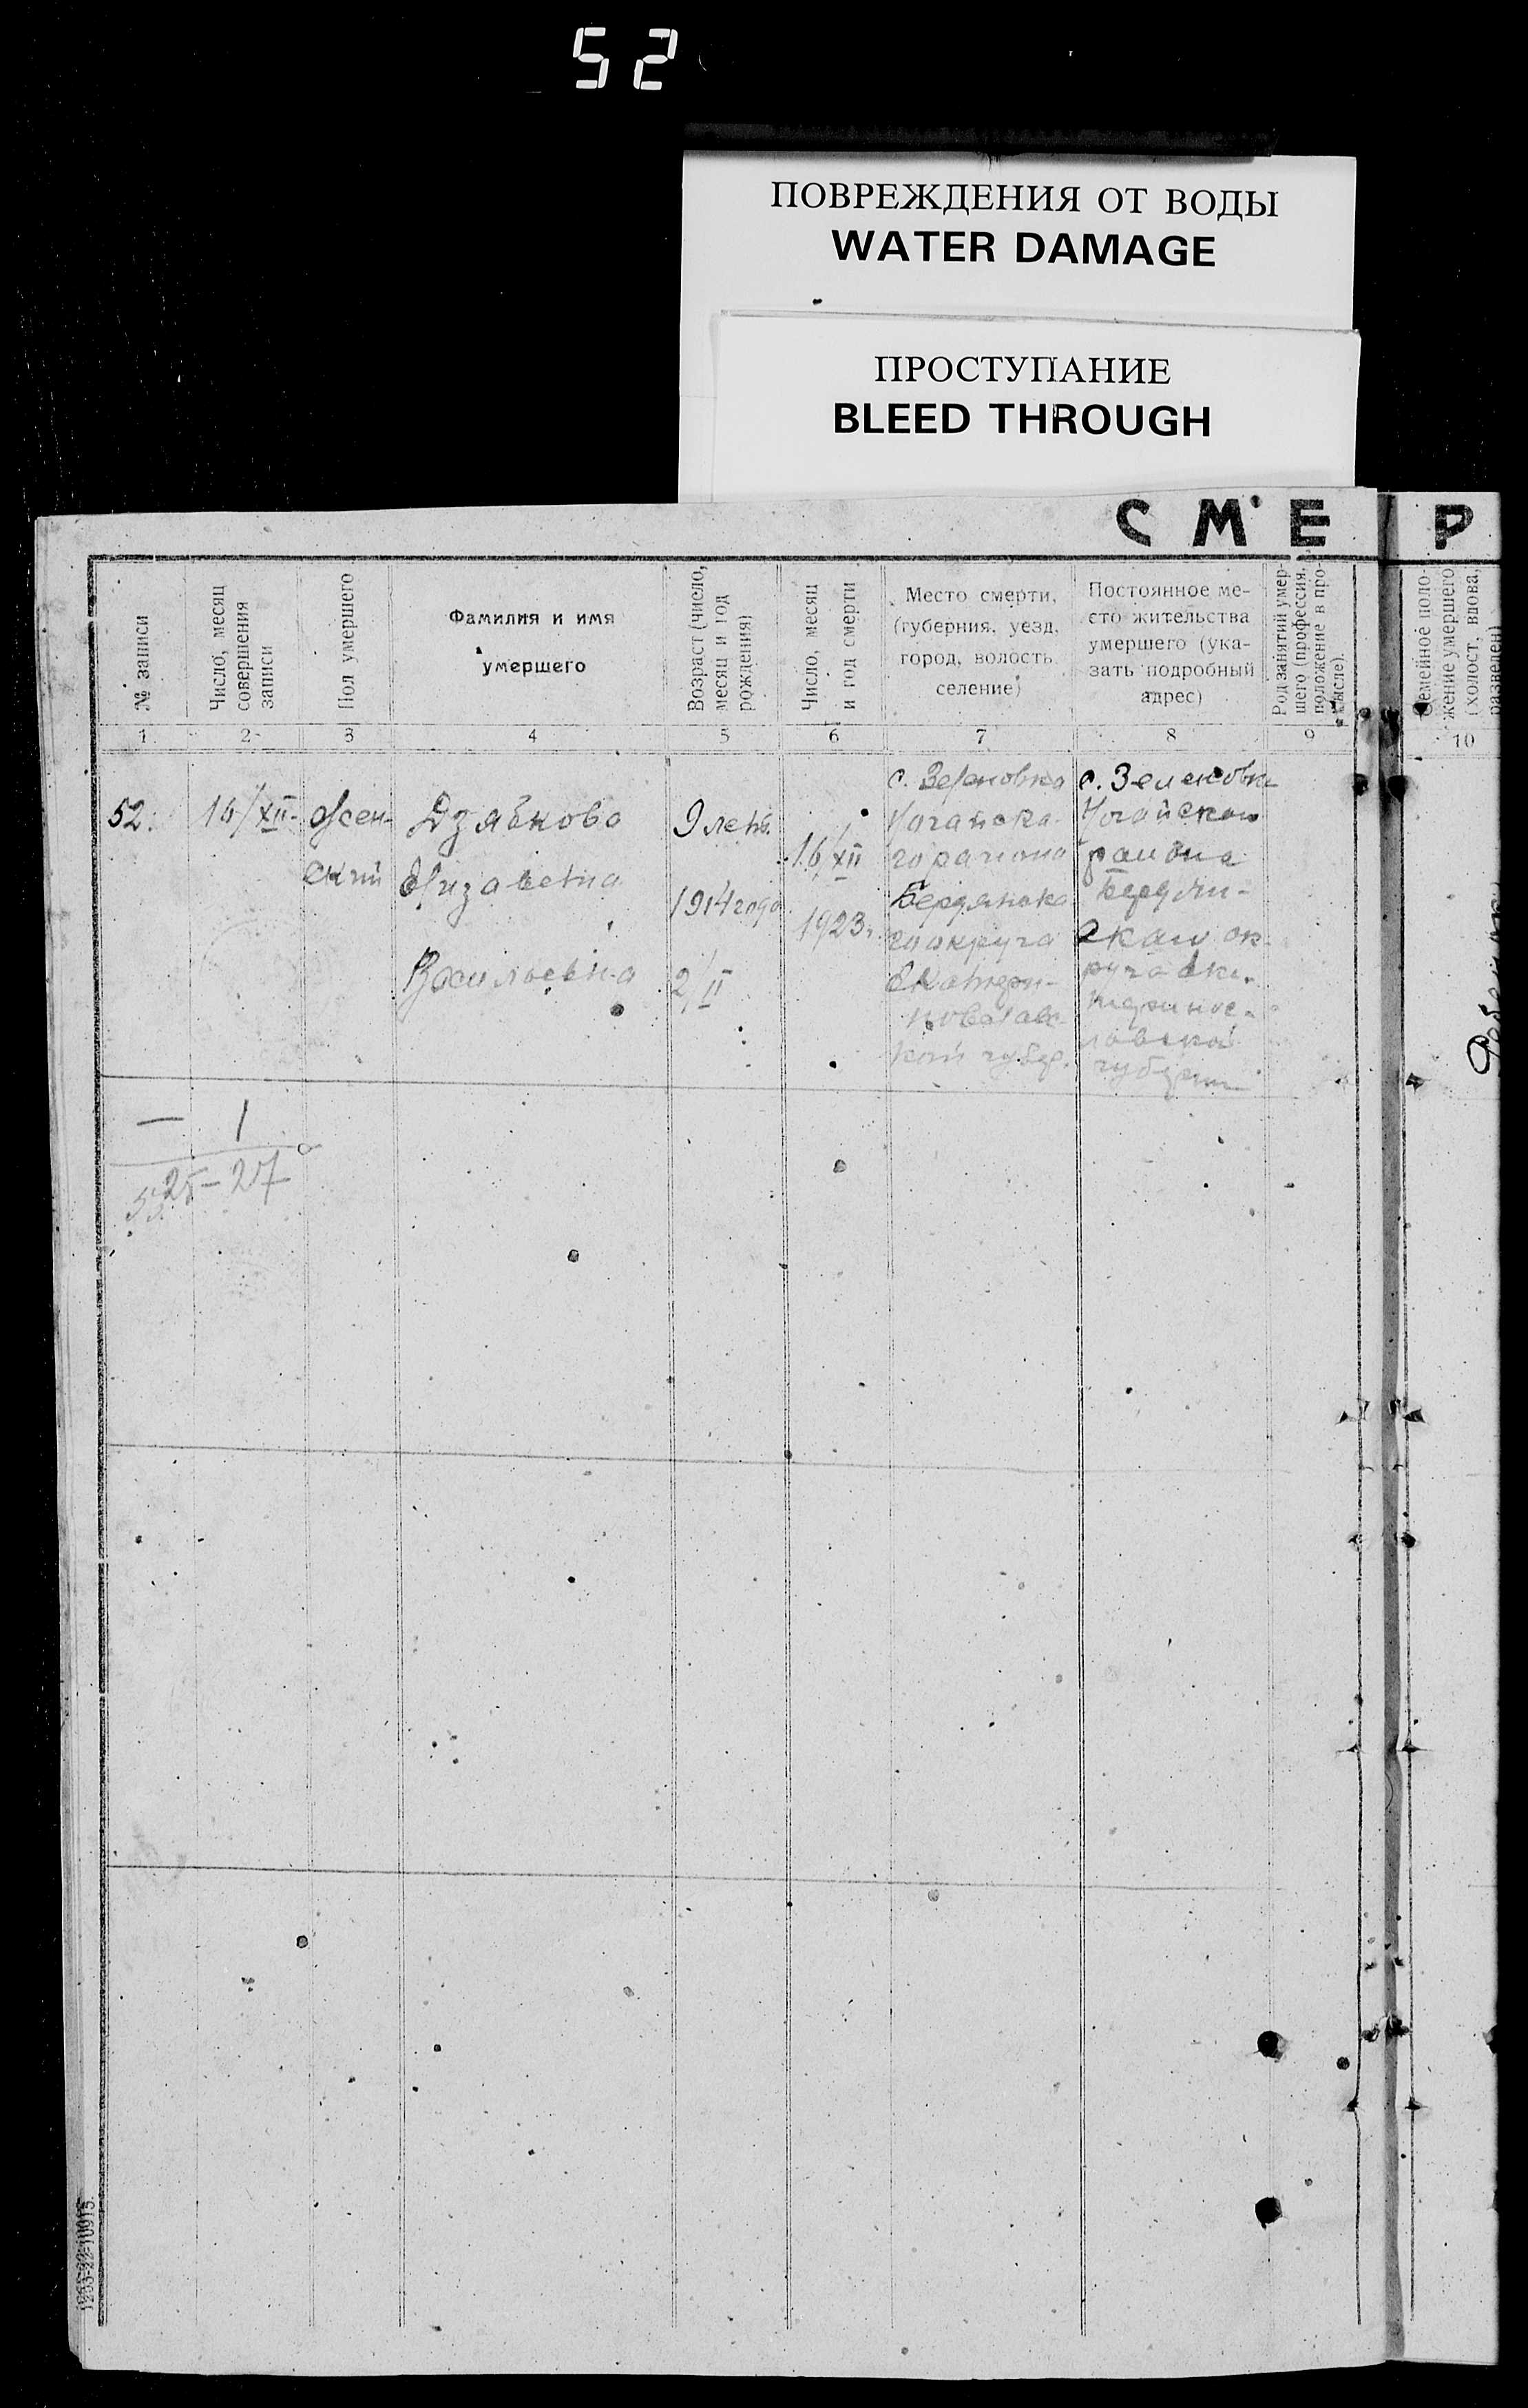 52
ПОВРЕЖДЕНИЯ ОТ ВОДЫ
WATER DAMAGE
ПРОСТУПАНИЕ
BLEED THROUGH
С М Е Р
№ записи
Число, месяц
совершения
записи
Пол умершего
Фамилия и имя
умершего
Возраст (число,
месяц и год
рождения)
Число, месяц
и год смерти
Место смерти,
(губерния, уезд,
город, волость
селение)
Постоянное ме-
сто жительства
умершего (ука-
зать подробный
адрес)
Род занятий умер-
шего (профессия,
положение в про-
мысле).
Семейное поло-
жение умершего
(холост, вдова,
разведен)
1 2 3 4 5 6 7 8 9 10
52.
16/XII-
Жен-
ский
Дзябкова
Елизавета
Васильевна
9 летъ.
1914 года
2/II
16/XII
1923г.
с. Зеленовка
Ногайска-
го района
Бердянска
го округа
Екатери-
нославс-
кой губер.
с. Зеленовка
Ногайскаго
района
округа Ека-
теринос-
лавской
губернии
— 1
25-27